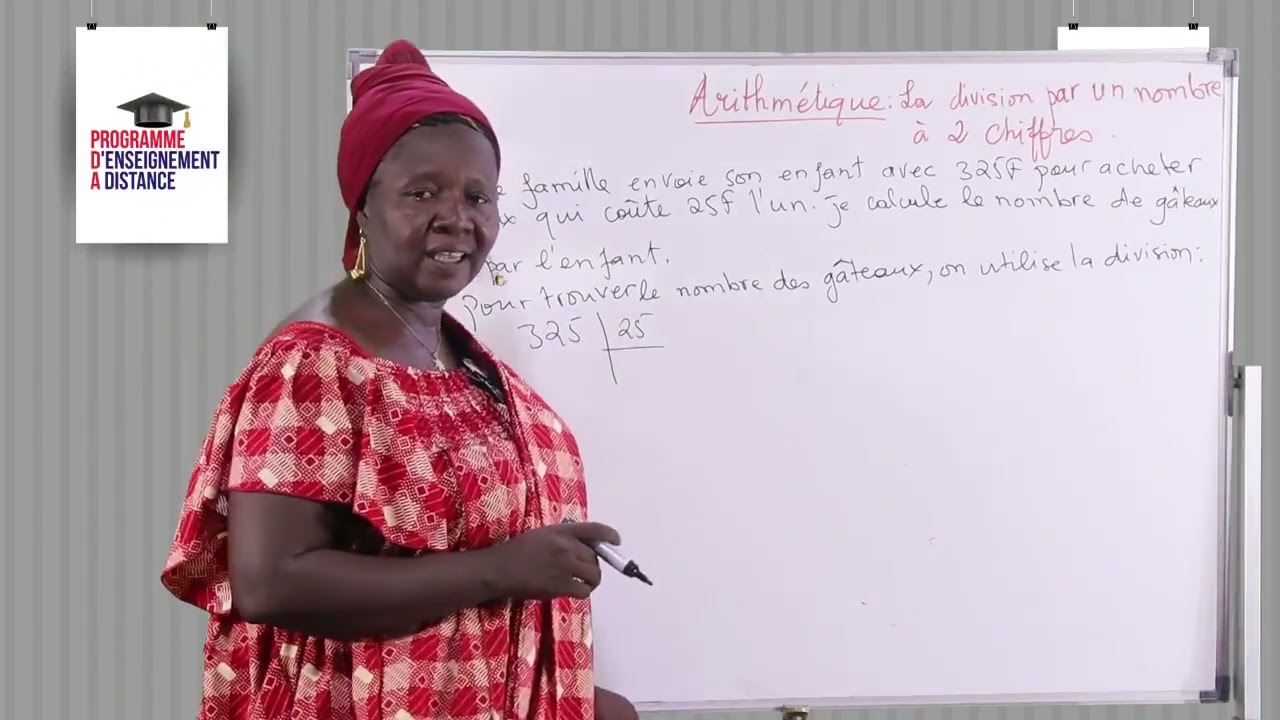 PROGRAMME
D'ENSEIGNEMENT
A DISTANCE
Arithmétique: La division par un nombre
à 2 chiffres.
famille envoie son enfant avec 325F pour acheter
qui coûte 25F l'un. Je calcule le nombre de gâteaux
par l'enfant.
Pour trouver le nombre des gâteaux, on utilise la division:
325 25